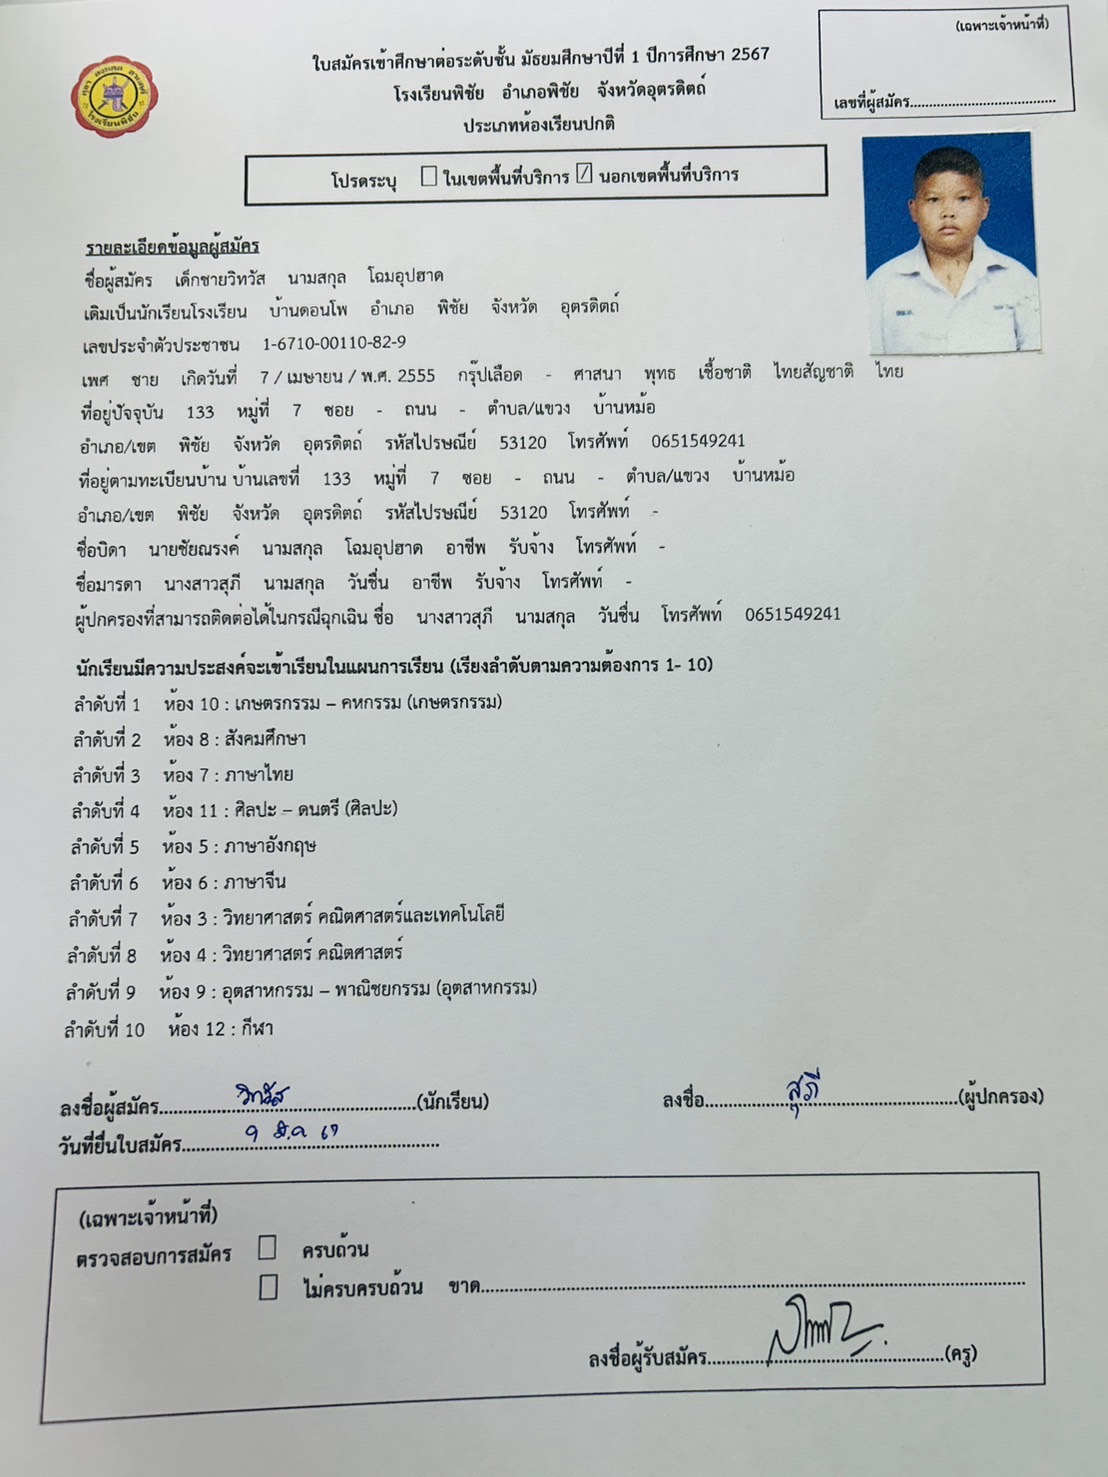 (เฉพาะเจ้าหน้าที่)
เลขที่ผู้สมัคร......................................
ใบสมัครเข้าศึกษาต่อระดับชั้น มัธยมศึกษาปีที่ 1 ปีการศึกษา 2567
โรงเรียนพิชัย อำเภอพิชัย จังหวัดอุตรดิตถ์
ประเภทห้องเรียนปกติ
โปรดระบุ ☐ ในเขตพื้นที่บริการ ☑ นอกเขตพื้นที่บริการ
รายละเอียดข้อมูลผู้สมัคร
ชื่อผู้สมัคร เด็กชายวิทวัส นามสกุล โฉมอุปฮาด
เดิมเป็นนักเรียนโรงเรียน บ้านดอนโพ อำเภอ พิชัย จังหวัด อุตรดิตถ์
เลขประจำตัวประชาชน 1-6710-00110-82-9
เพศ ชาย เกิดวันที่ 7 / เมษายน / พ.ศ. 2555 กรุ๊ปเลือด - ศาสนา พุทธ เชื้อชาติ ไทยสัญชาติ ไทย
ที่อยู่ปัจจุบัน 133 หมู่ที่ 7 ซอย - ถนน - ตำบล/แขวง บ้านหม้อ
อำเภอ/เขต พิชัย จังหวัด อุตรดิตถ์ รหัสไปรษณีย์ 53120 โทรศัพท์ 0651549241
ที่อยู่ตามทะเบียนบ้าน บ้านเลขที่ 133 หมู่ที่ 7 ซอย - ถนน - ตำบล/แขวง บ้านหม้อ
อำเภอ/เขต พิชัย จังหวัด อุตรดิตถ์ รหัสไปรษณีย์ 53120 โทรศัพท์ -
ชื่อบิดา นายชัยณรงค์ นามสกุล โฉมอุปฮาด อาชีพ รับจ้าง โทรศัพท์ -
ชื่อมารดา นางสาวสุภี นามสกุล วันชื่น อาชีพ รับจ้าง โทรศัพท์ -
ผู้ปกครองที่สามารถติดต่อได้ในกรณีฉุกเฉิน ชื่อ นางสาวสุภี นามสกุล วันชื่น โทรศัพท์ 0651549241
นักเรียนมีความประสงค์จะเข้าเรียนในแผนการเรียน (เรียงลำดับตามความต้องการ 1- 10)
ลำดับที่ 1 ห้อง 10 : เกษตรกรรม – คหกรรม (เกษตรกรรม)
ลำดับที่ 2 ห้อง 8 : สังคมศึกษา
ลำดับที่ 3 ห้อง 7 : ภาษาไทย
ลำดับที่ 4 ห้อง 11 : ศิลปะ – ดนตรี (ศิลปะ)
ลำดับที่ 5 ห้อง 5 : ภาษาอังกฤษ
ลำดับที่ 6 ห้อง 6 : ภาษาจีน
ลำดับที่ 7 ห้อง 3 : วิทยาศาสตร์ คณิตศาสตร์และเทคโนโลยี
ลำดับที่ 8 ห้อง 4 : วิทยาศาสตร์ คณิตศาสตร์
ลำดับที่ 9 ห้อง 9 : อุตสาหกรรม – พาณิชยกรรม (อุตสาหกรรม)
ลำดับที่ 10 ห้อง 12 : กีฬา
ลงชื่อผู้สมัคร.......วิทวัส.......(นักเรียน) ลงชื่อ.......สุภี.......(ผู้ปกครอง)
วันที่ยื่นใบสมัคร.......9 มี.ค. 67.......
(เฉพาะเจ้าหน้าที่)
ตรวจสอบการสมัคร ☐ ครบถ้วน
☐ ไม่ครบครบถ้วน ขาด..............................
ลงชื่อผู้รับสมัคร..............................(ครู)